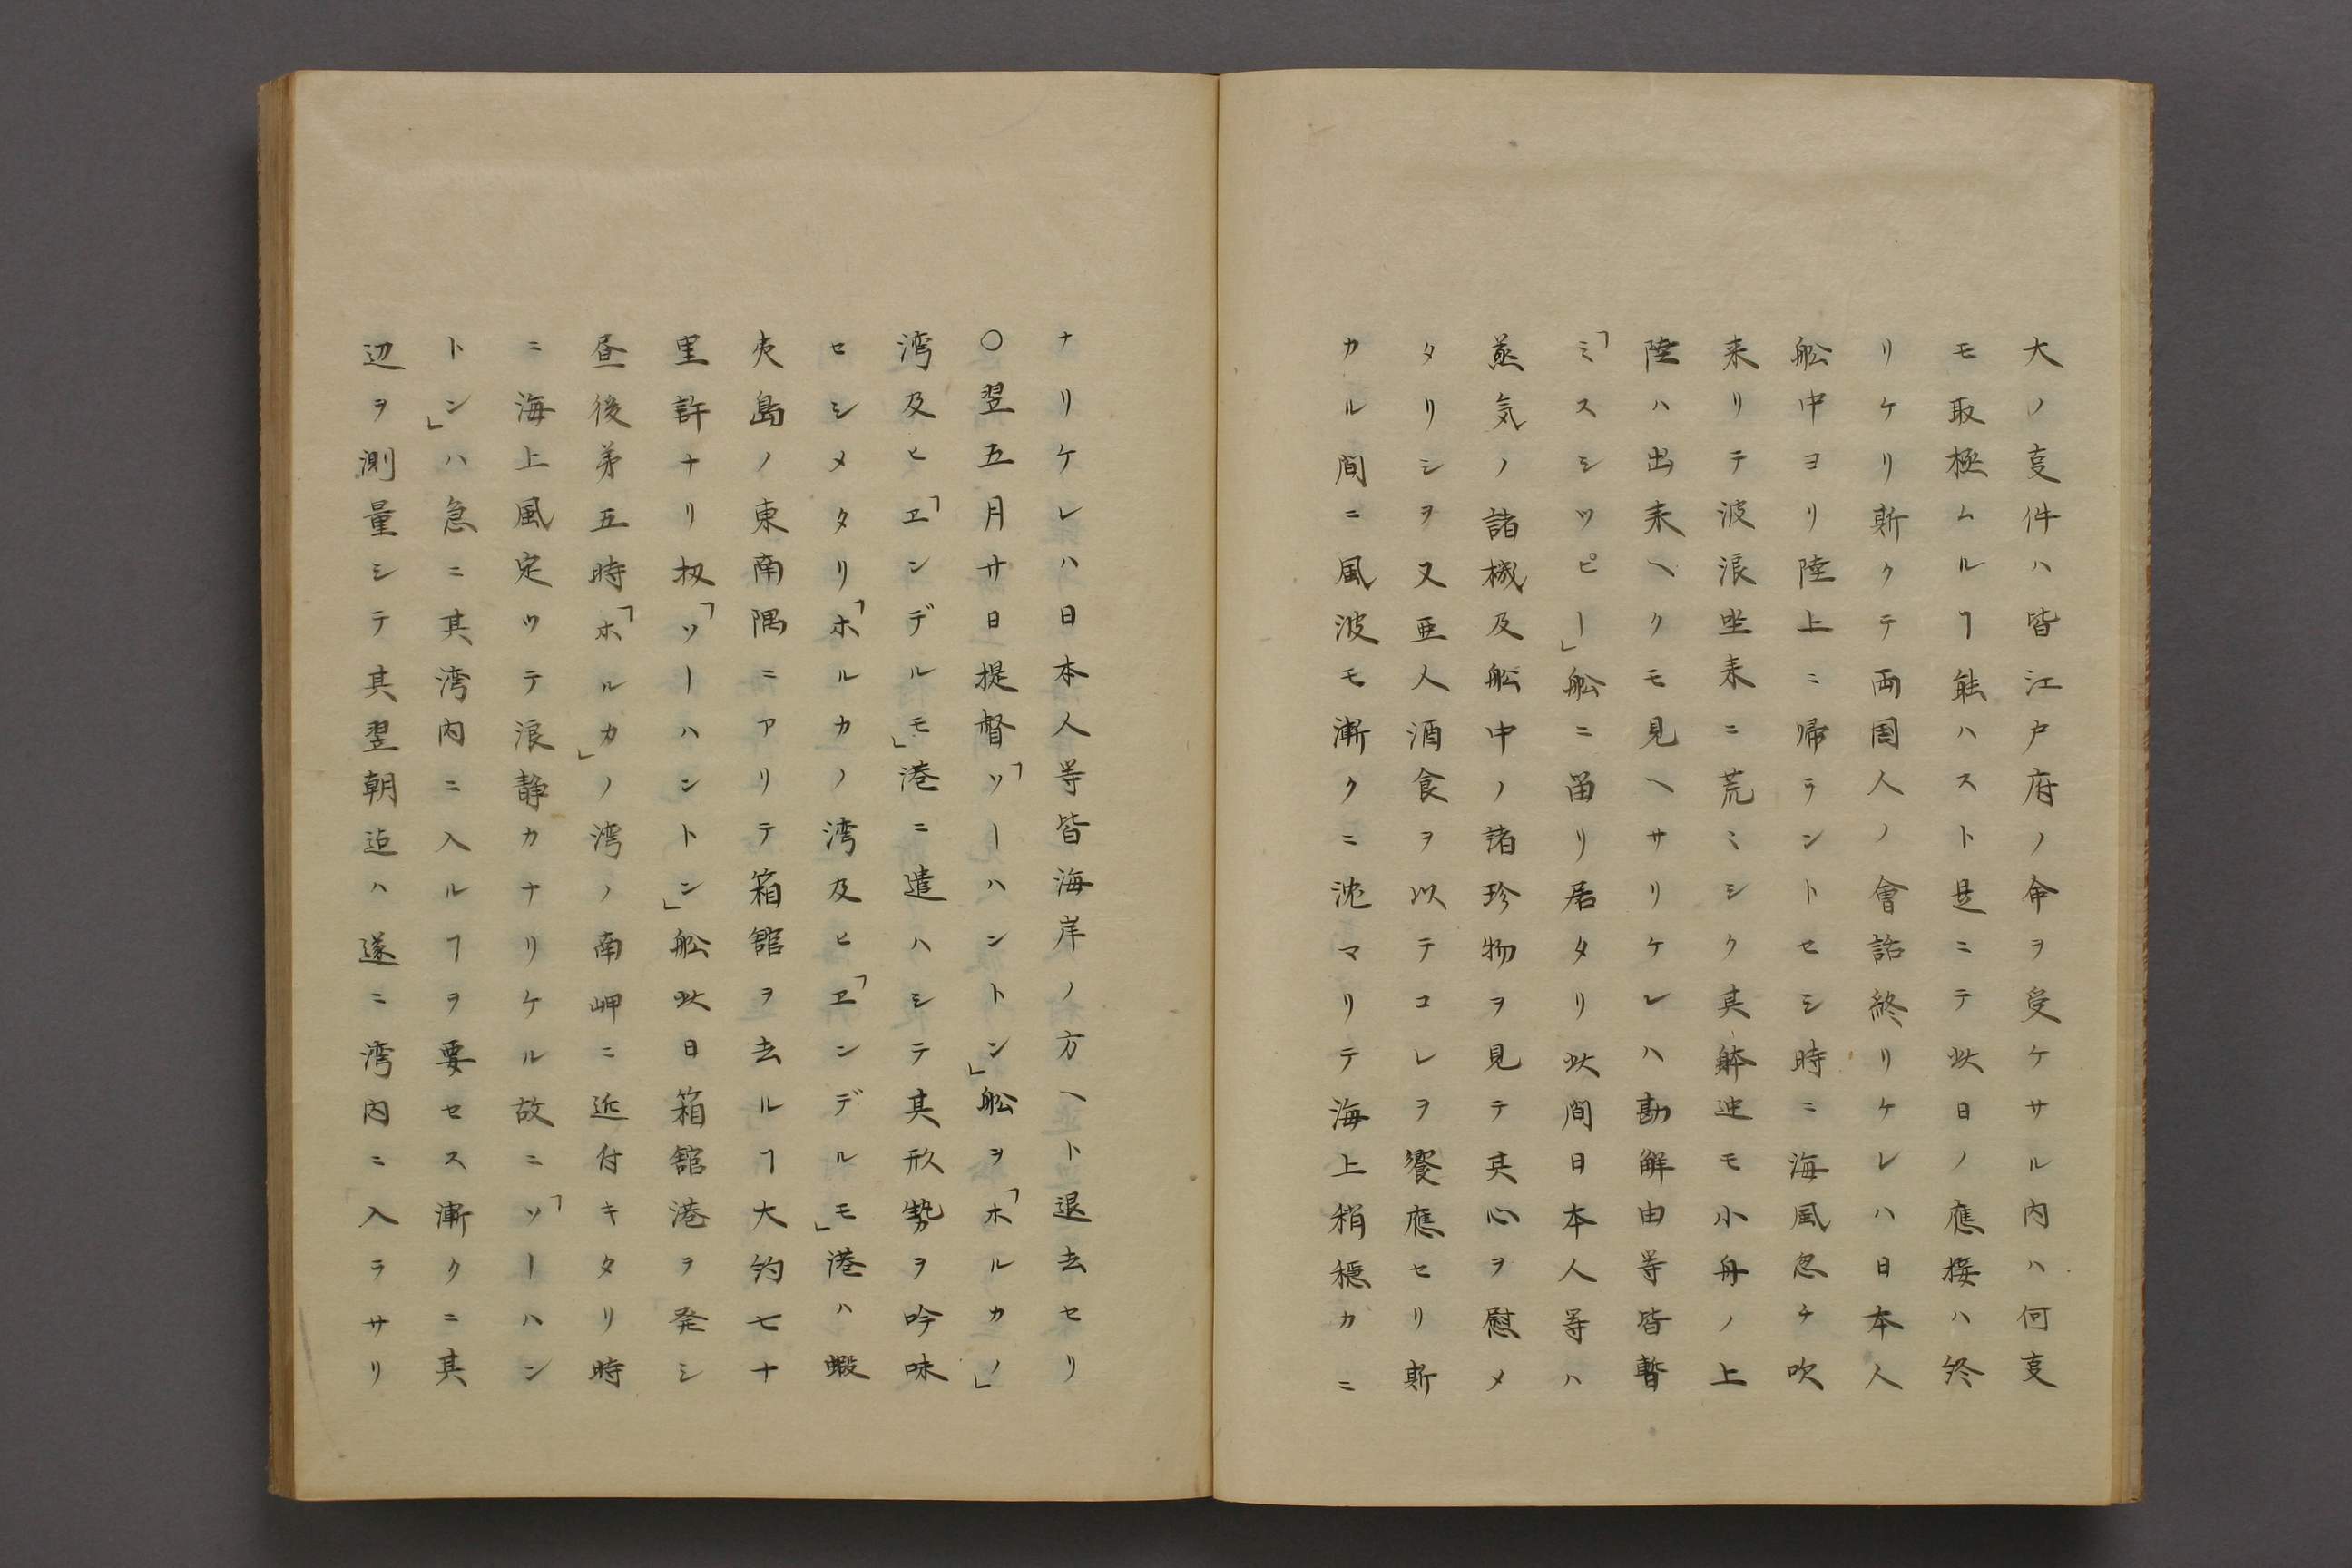 大ノ亊件ハ皆江戸府ノ命ヲ受ケサル内ハ何亊
モ取極ムルヿ能ハスト是ニテ此日ノ應接ハ終
リケリ斯クテ両国人ノ會話終リケレハ日本人
舩中ヨリ陸上ニ帰ラントセシ時ニ海風忽チ吹
来リテ波浪坐来ニ荒ミシク其躰迚モ小舟ノ上
陸ハ出来ヘクモ見ヘサリケレハ勘解由等皆暫
「ミスシツピー」舩ニ畄リ居タリ此間日本人等ハ
蒸気ノ諸機及舩中ノ諸珍物ヲ見テ其心ヲ慰メ
タリシヲ又亜人酒食ヲ以テコレヲ饗應セリ斯
カル間ニ風波モ漸クニ沈マリテ海上稍穏カニ
ナリケレハ日本人等皆海岸ノ方ヘト退去セリ
〇翌五月廿日提督「ソーハントン」舩ヲ「ホルカノ」
湾及ヒ「エンデルモ」港ニ遣ハシテ其形勢ヲ吟味
セシメタリ「ホルカノ湾及ヒ「エンデルモ」港ハ蝦
夷島ノ東南隅ニアリテ箱舘ヲ去ルヿ大約七十
里許ナリ扨「ソーハントン」舩此日箱舘港ヲ発シ
昼後第五時「ホルカ」ノ湾ノ南岬ニ近付キタリ時
ニ海上風定ツテ浪静カナリケル故ニ「ソーハン
トン」ハ急ニ其湾内ニ入ルヿヲ要セス漸クニ其
辺ヲ測量シテ其翌朝迄ハ遂ニ湾内ニ入ラサリ